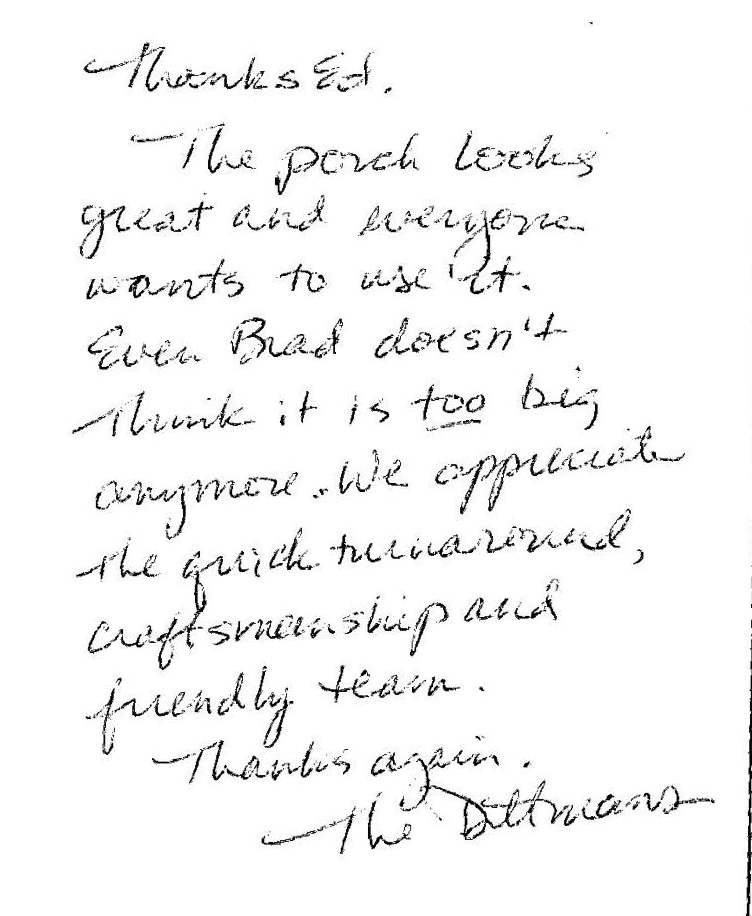 Thanks Ed.
The porch looks
great and everyone
wants to use it.
Even Brad doesn't
think it is too big
anymore. We appreciate
the quick turnaround,
craftsmanship and
friendly team.
Thanks again.
The Dittmans